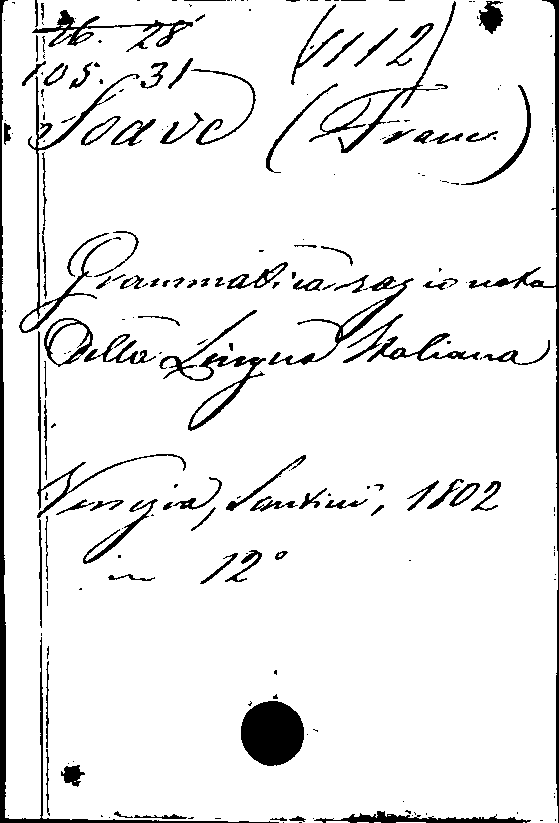 26. 28
(1112)
105. 31
Soave (Franc.)
Grammatica ragionata
Della Lingua Italiana
Venezia, Santini, 1802
in 12°